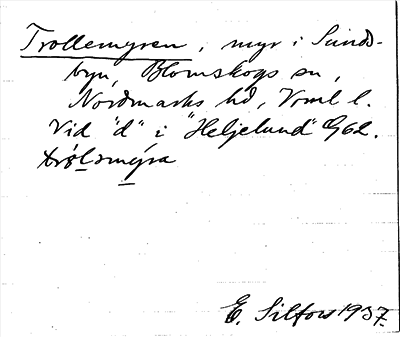 Trollemyren, myr i Sunds-
byn, Blomskogs sn,
Nordmarks hd, Vrml l.
Vid "d" i "Heljelund" G62.
trɵlɔmýra
E. Silfors 1937.